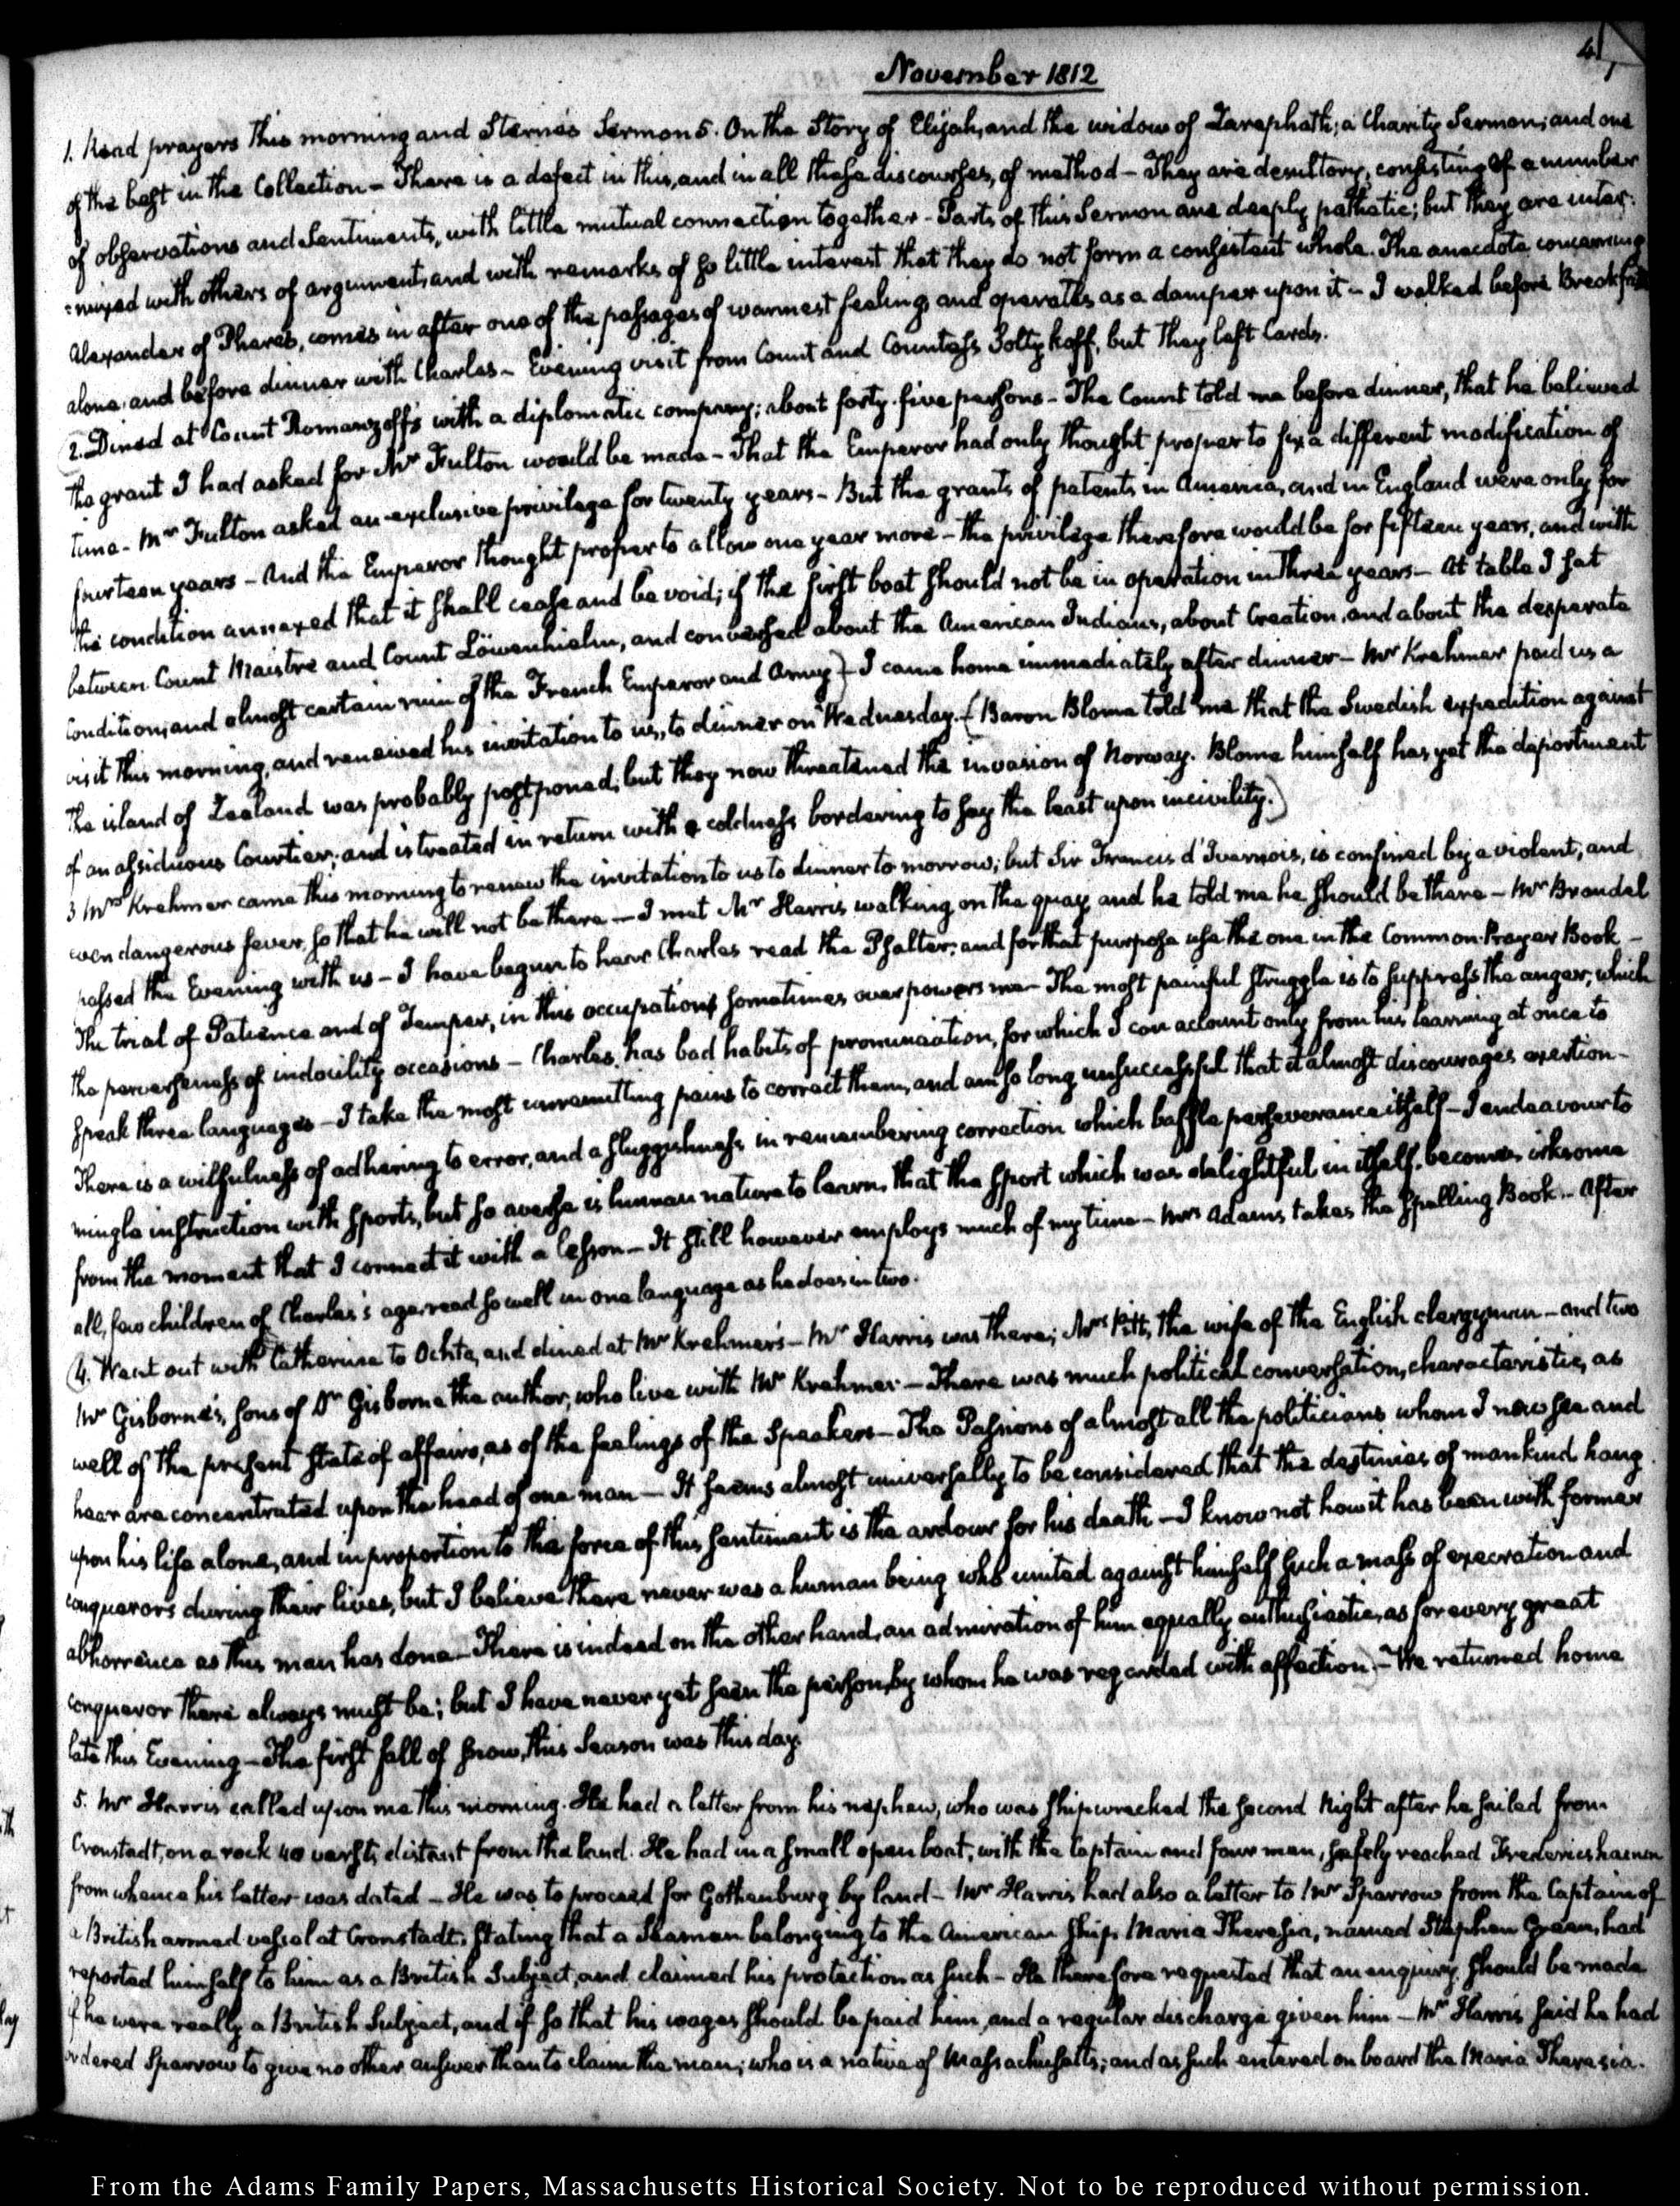 41
November 1812
1. Read prayers this morning and Sterne's Sermon 5. On the Story of Elijah, and the widow of Zarephath; a Charity Sermon; and one
of the best in the Collection – There is a defect in this, and in all these discourses, of method – They are desultory, consisting of a number
of observations and sentiments, with little mutual connection together – Parts of this Sermon are deeply pathetic; but they are inter-
-mixed with others of argument, and with remarks of so little interest that they do not form a consistent whole. The anecdote concerning
Alexander of Pheres, comes in after one of the passages of warmest feeling, and operates as a damper upon it – I walked before Breakfast
alone, and before dinner with Charles – Evening visit from Count and Countess Soltykoff, but they left Cards.
(2. Dined at Count Romanzoff's with a diplomatic company; about forty-five persons – The Count told me before dinner, that he believed
the grant I had asked for Mr Fulton would be made – That the Emperor had only thought proper to fix a different modification of
time – Mr Fulton asked an exclusive privilege for twenty years – But the grants of patents in America, and in England were only for
fourteen years – And the Emperor thought proper to allow one year more – the privilege therefore would be for fifteen years, and with
the condition annexed that it shall cease and be void; if the first boat should not be in operation in three years – At table I sat
between Count Maistre and Count Löwenhielm, and conversed about the American Indians, about Creation, and about the desperate
condition, and almost certain ruin of the French Emperor and Army) – I came home immediately after dinner – Mr Krehmer paid us a
visit this morning, and renewed his invitation to us, to dinner on Wednesday. (Baron Blome told me that the Swedish expedition against
the island of Zealand was probably postponed; but they now threatened the invasion of Norway. Blome himself has yet the deportment
of an assiduous Courtier; and is treated in return with a coldness bordering to say the least upon incivility.)
3 Mrs Krehmer came this morning to renew the invitation to us to dinner to morrow; but Sir Francis d'Ivernois, is confined by a violent, and
even dangerous fever, so that he will not be there – I met Mr Harris walking on the quay, and he told me he should be there – Mr Brandel
passed the Evening with us – I have begun to hear Charles read the Psalter; and for that purpose use the one in the Common-Prayer Book –
The trial of Patience and of Temper, in this occupation, sometimes overpowers me – The most painful struggle is to suppress the anger, which
the perverseness of indocility occasions – Charles has bad habits of pronunciation, for which I can account only from his learning at once to
speak three languages – I take the most unremitting pains to correct them, and am so long unsuccessful that it almost discourages exertion –
There is a wilfulness of adhering to error, and a sluggishness in remembering correction which baffle perseverance itself – I endeavour to
mingle instruction with sports, but so averse is human nature to learn, that the sport which was delightful in itself, becomes irksome
from the moment that I connect it with a lesson – It still however employs much of my time – Mrs Adams takes the Spelling Book – After
all, few children of Charles's age, read so well in one language as he does in two.
(4. Went out with Catherine to Ochta, and dined at Mr Krehmer's – Mr Harris was there; Mrs Pitt, the wife of the English clergyman – and two
Mr Gisborne's, sons of Dr Gisborne the author, who live with Mr Krehmer – There was much political conversation, characteristic, as
well of the present state of affairs, as of the feelings of the Speakers – The Passions of almost all the politicians whom I now see and
hear are concentrated upon the head of one man – It seems almost universally to be considered that the destinies of mankind hang
upon his life alone, and in proportion to the force of this sentiment is the ardour for his death – I know not how it has been with former
conquerors during their lives, but I believe there never was a human being who united against himself such a mass of execration and
abhorrence as this man has done – There is indeed on the other hand, an admiration of him equally enthusiastic, as for every great
conqueror there always must be; but I have never yet seen the person, by whom he was regarded with affection.) – We returned home
late this Evening – The first fall of snow, this Season was this day.
5. Mr Harris called upon me this morning. He had a letter from his nephew, who was shipwrecked the second Night after he sailed from
Cronstadt, on a rock 40 versts distant from the land. He had in a small open boat, with the Captain and four men, safely reached Fredericshamn
from whence his letter was dated – He was to proceed for Gothenburg by land – Mr Harris had also a letter to Mr Sparrow from the Captain of
a British armed vessel at Cronstadt, stating that a Seaman belonging to the American ship, Maria Theresia, named Stephen Green, had
reported himself to him as a British Subject, and claimed his protection as such – He therefore requested that an enquiry should be made
if he were really a British Subject, and if so that his wages should be paid him, and a regular discharge given him – Mr Harris said he had
ordered Sparrow to give no other answer than to claim the man; who is a native of Massachusetts; and as such entered on board the Maria Theresia.
From the Adams Family Papers, Massachusetts Historical Society. Not to be reproduced without permission.